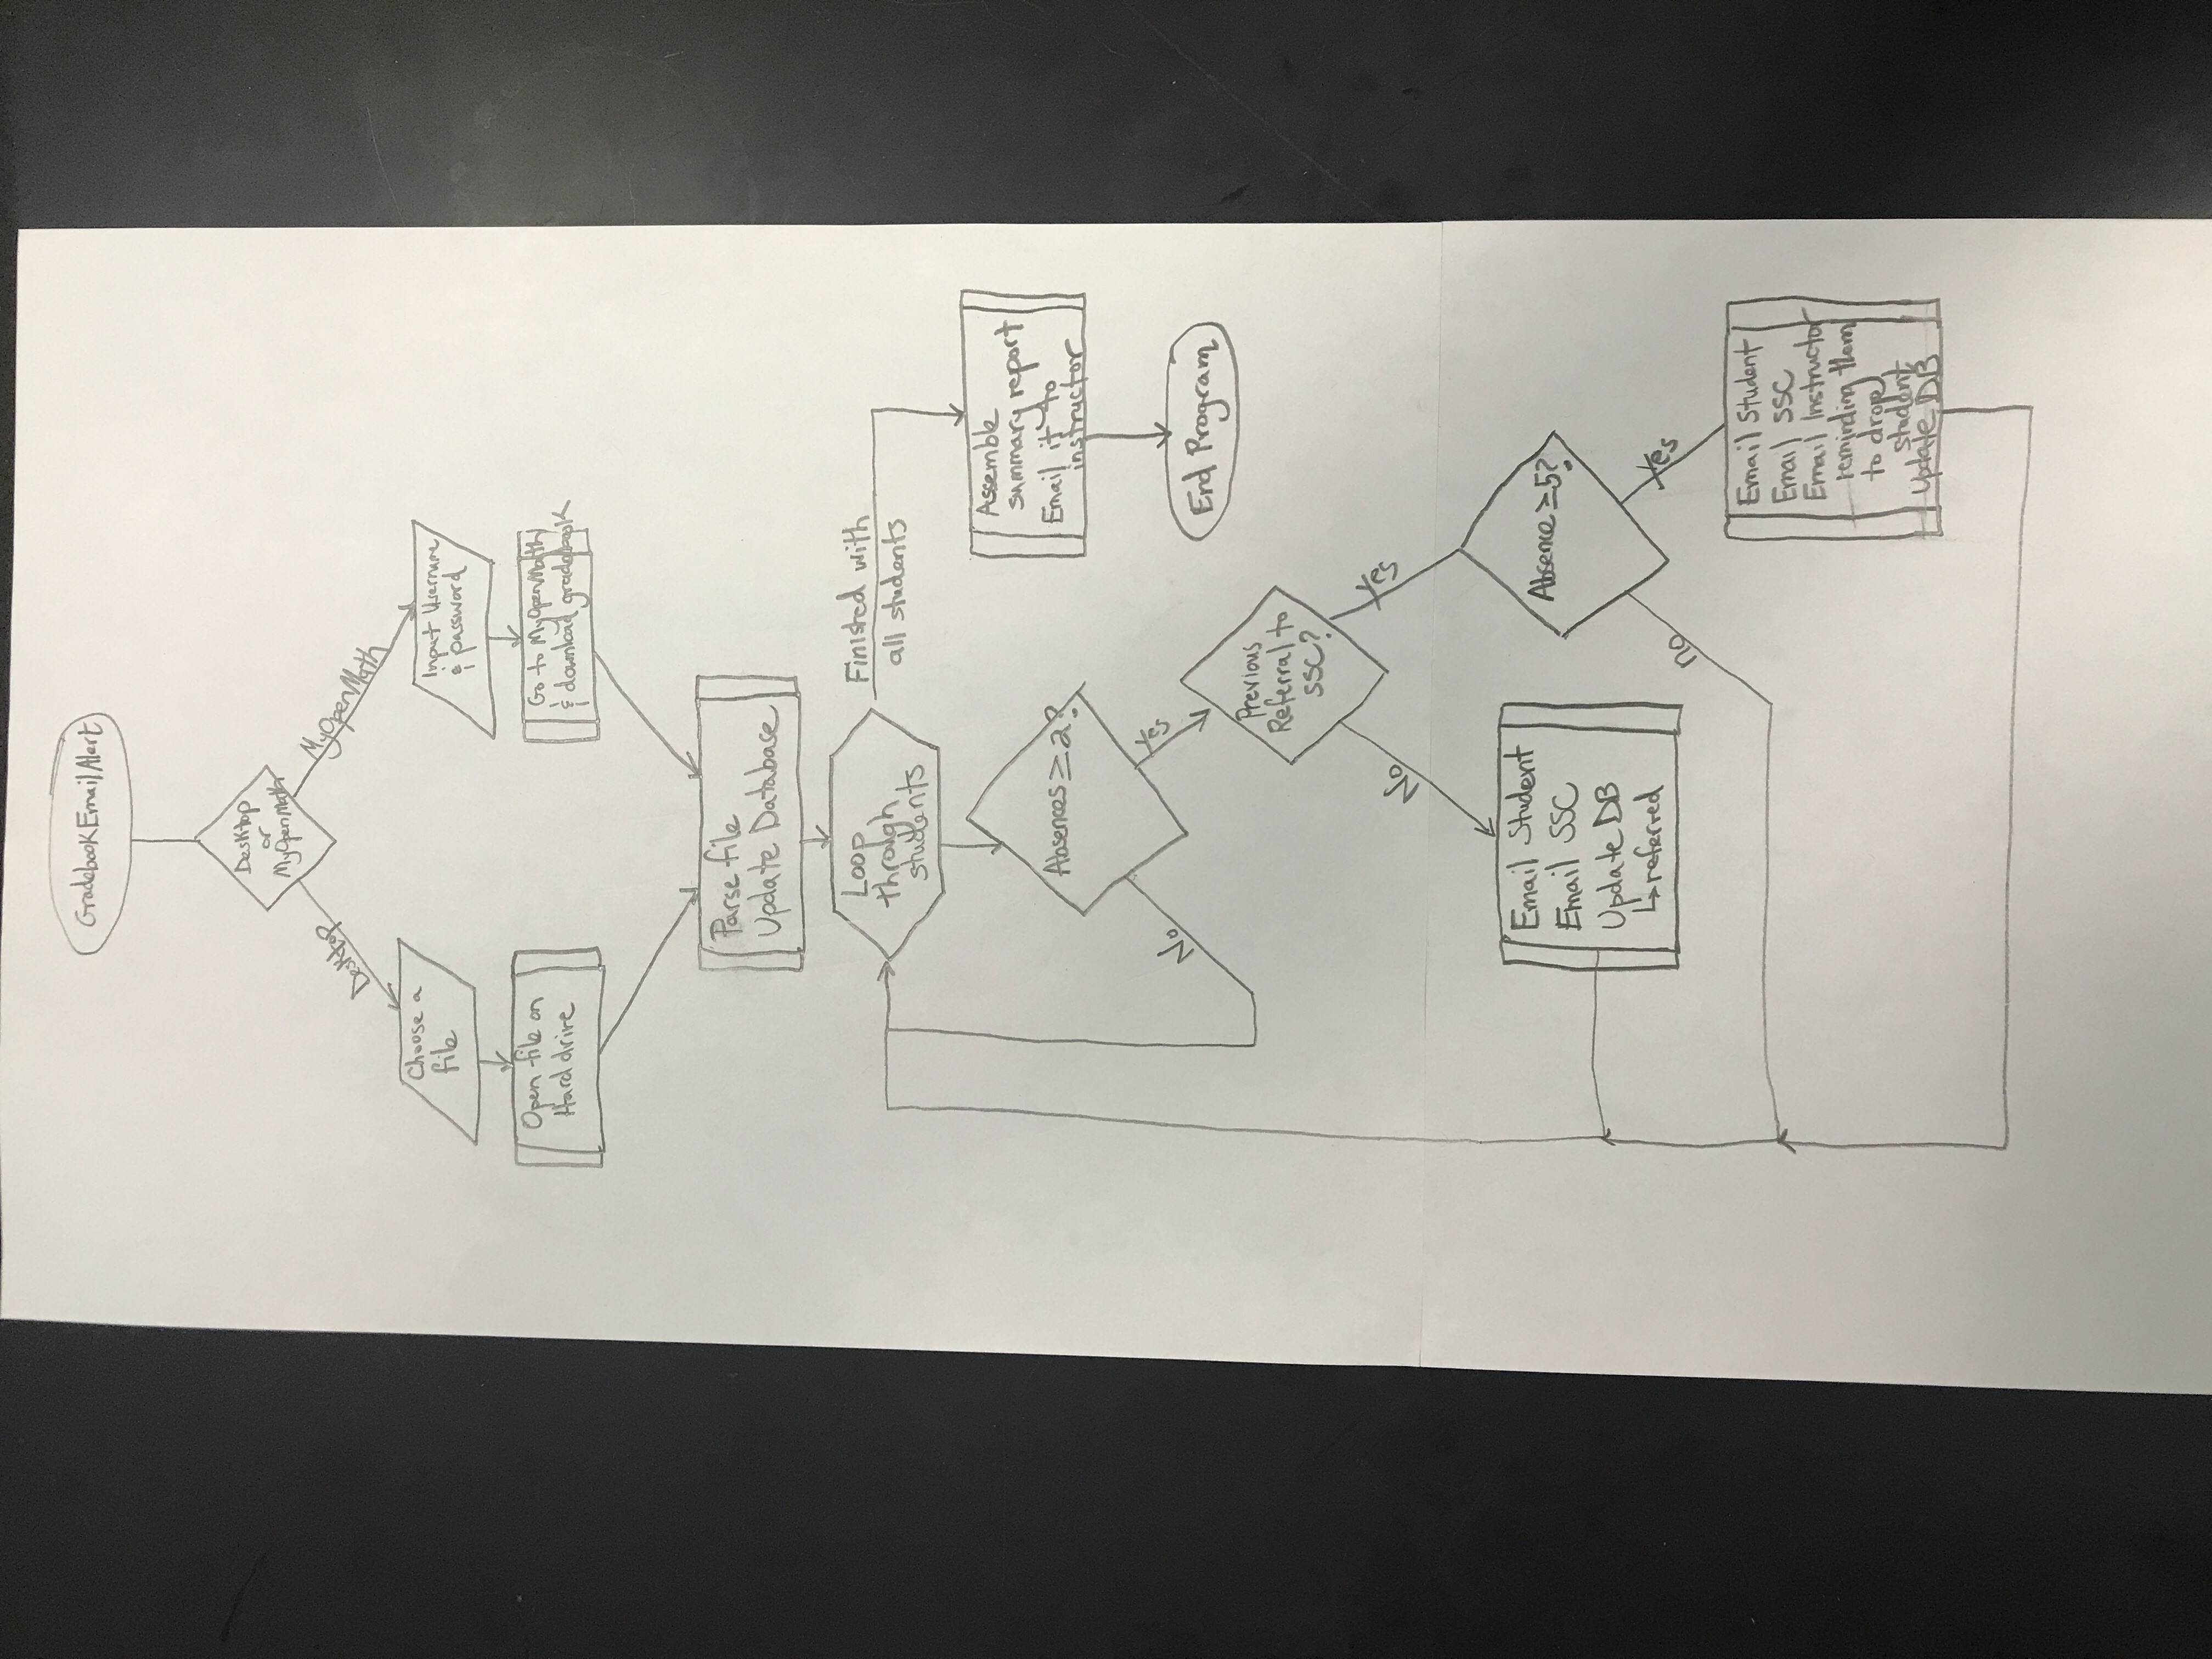 GradebookEmailAlert
Desktop
or
MyOpenMath
Desktop
MyOpenMath
Choose a
file
Input Username
& password
Open file on
Hard drive
Go to MyOpenMath
& download gradebook
Parse file
Update Database
Loop
through
students
Finisted with
all students
Assemble
summary report
Email it to
instructor
End Program
Absences ≥ 2?
No
Yes
Previous
Referral to
SSC?
No
Yes
Email Student
Email SSC
Update DB
↳ referred
Absence ≥5?
no
Yes
Email Student
Email SSC
Email Instructor
reminding them
to drop
student
Update DB